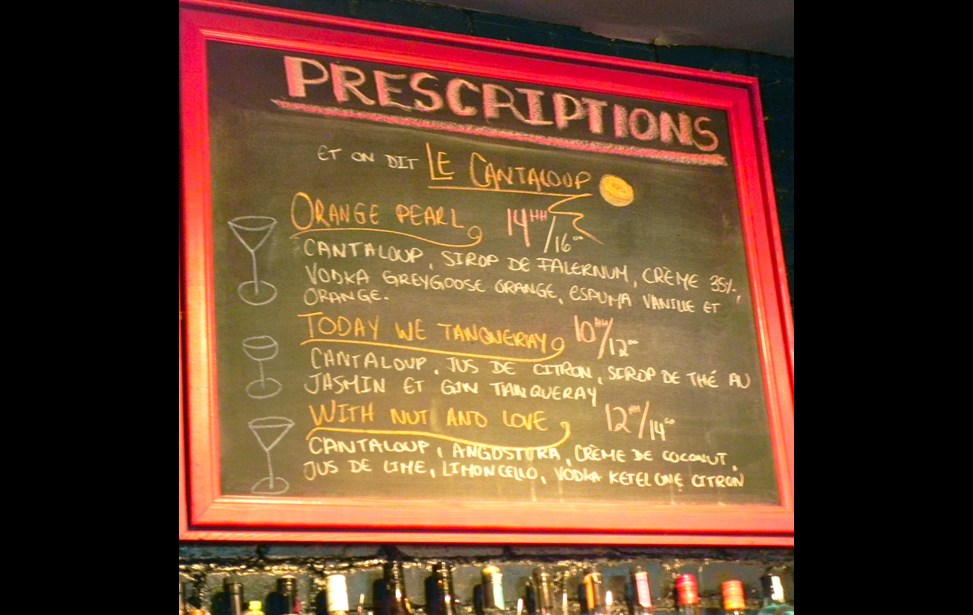 PRESCRIPTIONS
ET ON DIT LE CANTALOUP
ORANGE PEARL 14HH/16°°
CANTALOUP, SIROP DE FALERNUM, CRÈME 35%,
VODKA GREYGOOSE ORANGE, ESPUMA VANILLE ET
ORANGE.
TODAY WE TANQUERAY 10HH/12°°
CANTALOUP, JUS DE CITRON, SIROP DE THÉ AU
JASMIN ET GIN TANQUERAY
WITH NUT AND LOVE 12HH/14°°
CANTALOUP, ANGOSTURA, CRÈME DE COCONUT,
JUS DE LIME, LIMONCELLO, VODKA KETEL ONE CITRON